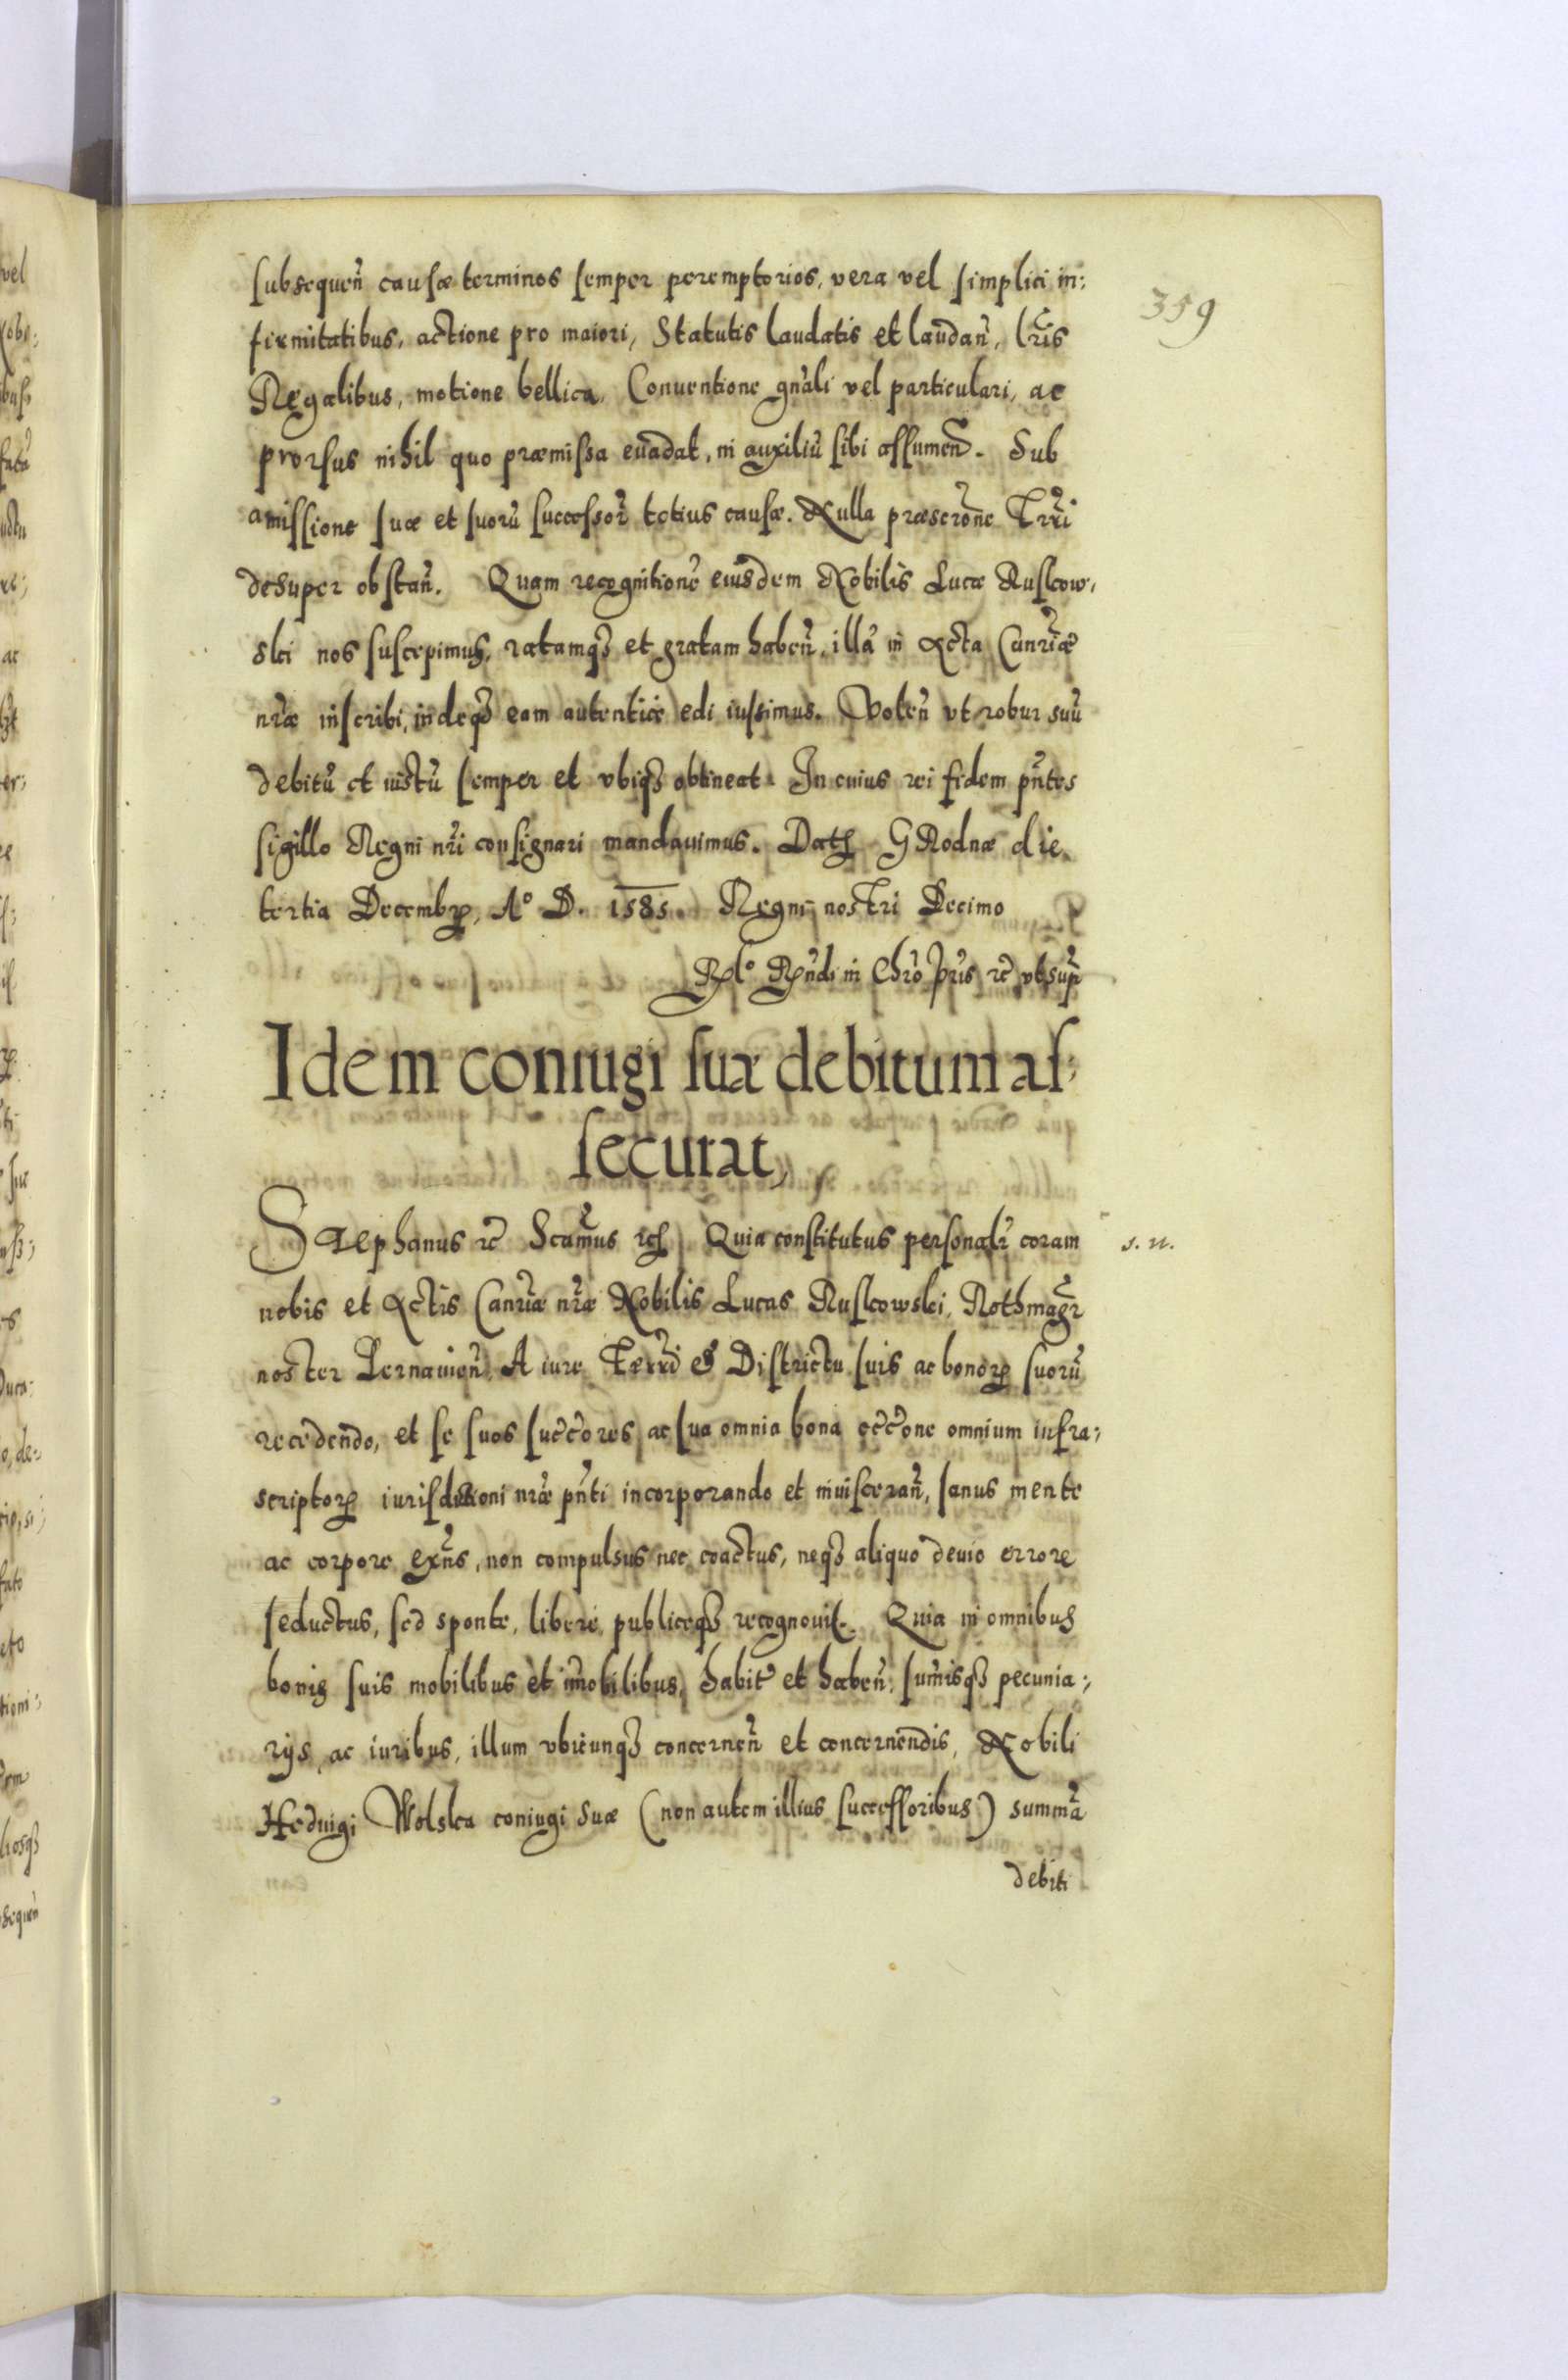 359
subsequeñ causæ terminos semper peremptorios, vera vel simplici in:
firmitatibus, actione pro maiori, Statutis laudatis et laudañ, Lr̃is
Regalibus, motione bellica, Conuentione gnãli vel particulari, ac
prorsus nihil quo præmissa euadat, in auxiliũ sibi assumeñd. Sub
amissione suæ et suorũ successor̃ totius causæ. Nulla præscrõne Tr̃ri
desuper obstañ. Quam recognitionẽ eiusdem Nobilis Lucæ Ruskow,
ski nos suscepimus, ratamqꝫ et gratam habeñ, illã in Acta Canr̃iæ
nr̃æ inscribi, indeqꝫ eam autenticè edi iussimus. Voleñ vt robur suũ
debitũ et iustũ semper et vbiqꝫ obtineat. In cuius rei fidem pñtes
sigillo Regni nr̃i consignari mandauimus. Datꝭ GRodnæ die
tertia Decembrꝭ, Aº D. 1585. Regni nostri Decimo
Rlº Rñdi in Chrõ Pr̃is rc̃ vt supr̃
Idem coniugi suæ debitum as:
securat,
STephanus rc̃ Scam̃us rcꝭ Quia constitutus personalr̃ coram
s. n.
nobis et Actis Canr̃iæ nr̃æ Nobilis Lucas Ruskowski, Rothmagr̃
noster Pernauieñ, A iure Terr̃i & Districtu suis ac bonorꝝ suorũ
recedendo, et se suos succ̃ores ac sua omnia bona occ̃one omnium infra:
scriptorꝝ iurisdictioni nr̃æ pñti incorporando et inuisceran̄, sanus mente
ac corpore exñs, non compulsus nec coactus, neqꝫ aliquo deuio errore
seductus, sed sponte, liberè, publiceqꝫ recognouit. Quia in omnibus
bonis suis mobilibus et im̃obilibus, habit̃ et habeñ, sum̃isqꝫ pecunia:
rijs, ac iuribus, illum vbicunqꝫ concerneñ et concernendis, Nobili
Heduigi Wolska coniugi suæ (non autem illius successoribus) summã
debiti